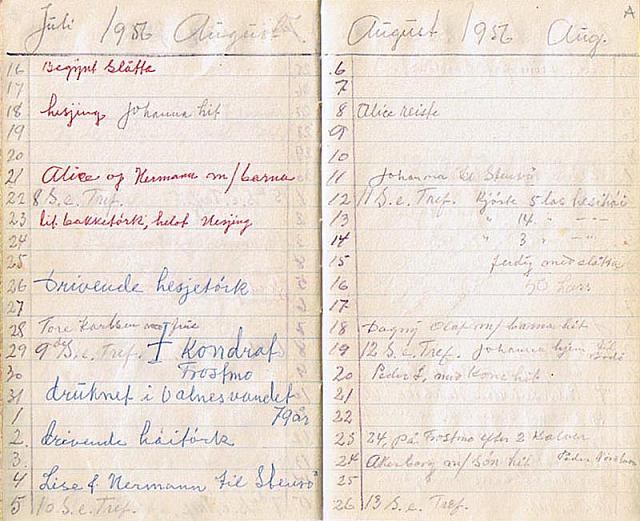 Juli 1956 August
16 Begynt Slåtta
17
18 hesjing Johanna hit
19
20
21 Alice og Hermann m/barna
22 8 S.e. Tref.
23 litt bakketörk, helst Hesjing
24
25
26 Drivende hesjetörk
27
28 Tore Karlsen frue
29 9de S.e. Tref. † Kondrat
30 Frostmo
31 druknet i Valnesvandet
1 79 år
2. drivende håitörk
3.
4 Lise & Hermann til Steusö
5 10 S.e. Tref.
August 1956 Aug. A
6
7
8 Alice reiste
9
10
11 Johanna til Steusö
12 11 S.e. Tref. Kjörte 5 las hesihöi
13 " 14. " — " —
14 " 3 " — " —
15 ferdig med slåtta
16 50 lass
17
18 Dagny Olaf m/barna hit
19 12 S.e. Tref. Johanna hjem til
20 Peder S, med Kone hit.
21
22
23 24, på Frostmo efter 2 Kalver
24 Akerborg m/sön hit Peder
25
26 13 S.e. Tref.